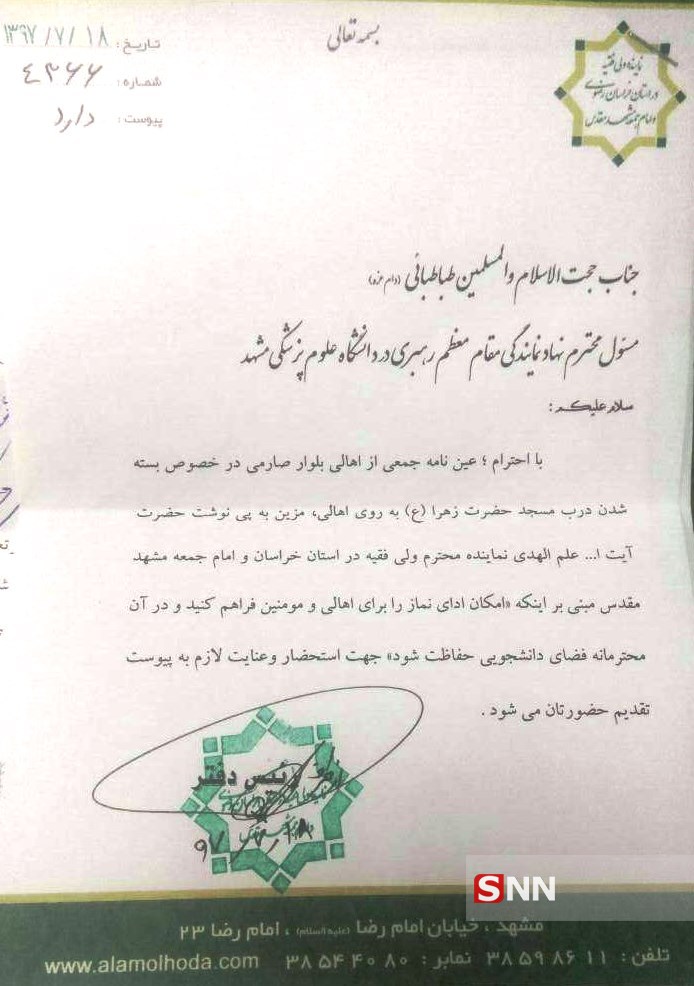 بسمه تعالی
تاریخ: ۱۳۹۷/۷/۱۸
شماره: ۴۳۶۶
پیوست: دارد
نماینده ولی فقیه
در استان خراسان رضوی
و امام جمعه مشهد مقدس
جناب حجت الاسلام والمسلمین طباطبائی (دام عزه)
مسئول محترم نهاد نمایندگی مقام معظم رهبری در دانشگاه علوم پزشکی مشهد
سلام علیکم:
با احترام ؛ عین نامه جمعی از اهالی بلوار صارمی در خصوص بسته
شدن درب مسجد حضرت زهرا (ع) به روی اهالی، مزین به پی نوشت حضرت
آیت ا... علم الهدی نماینده محترم ولی فقیه در استان خراسان و امام جمعه مشهد
مقدس مبنی بر اینکه «امکان ادای نماز را برای اهالی و مومنین فراهم کنید و در آن
محترمانه فضای دانشجویی حفاظت شود» جهت استحضار وعنایت لازم به پیوست
تقدیم حضورتان می شود .
رئیس دفتر
۹۷/۷/۱۸
SNN
مشهد ، خیابان امام رضا (علیه السلام) ، امام رضا ۲۳
تلفن: ۳۸ ۵۹ ۸۶ ۱۱ نمابر: ۳۸ ۵۴ ۴۰ ۸۰ www.alamolhoda.com